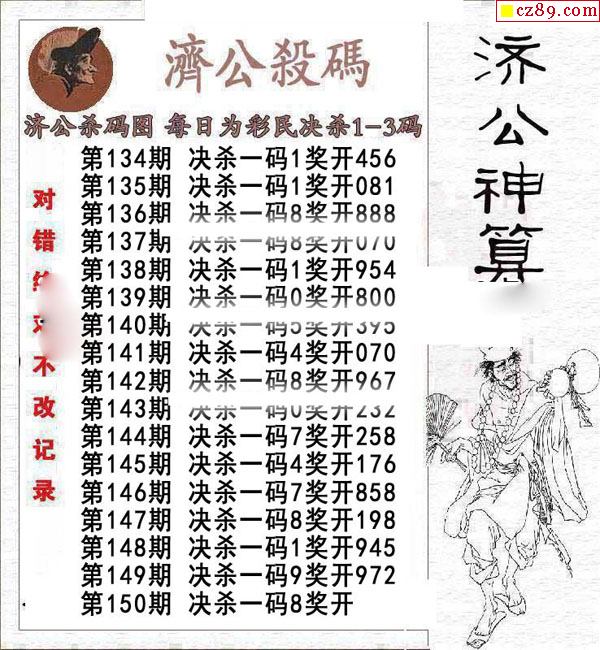 cz89.com
濟公殺碼
济公杀码图 每日为彩民决杀1-3码
第134期 决杀一码1奖开456
第135期 决杀一码1奖开081
第136期 决杀一码8奖开888
第137期 决杀一码8奖开070
第138期 决杀一码1奖开954
第139期 决杀一码0奖开800
第140期 决杀一码5奖开395
第141期 决杀一码4奖开070
第142期 决杀一码8奖开967
第143期 决杀一码0奖开232
第144期 决杀一码7奖开258
第145期 决杀一码4奖开176
第146期 决杀一码7奖开858
第147期 决杀一码8奖开198
第148期 决杀一码1奖开945
第149期 决杀一码9奖开972
第150期 决杀一码8奖开
对错不改记录
济公神算